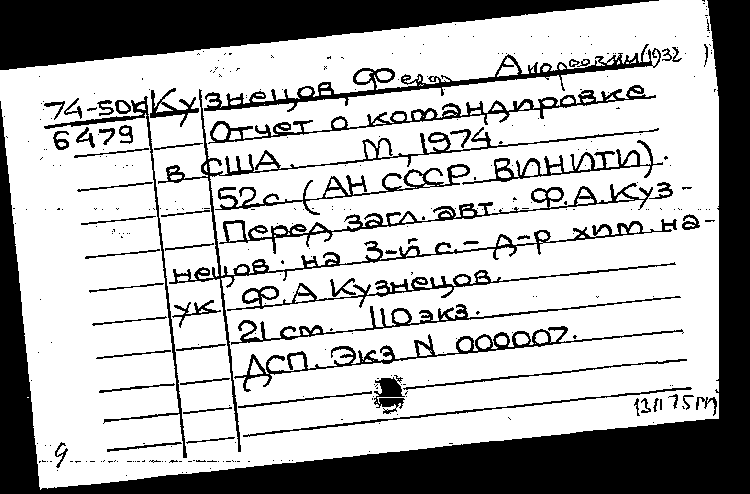 74-50К Кузнецов, Федор Андреевич (1932 )
6479 Отчет о командировке
в США. М., 1974.
52 с. (АН СССР. ВИНИТИ).
Перед загл. авт.: Ф.А. Куз-
нецов; на 3-й с. - д-р хим. на-
ук Ф.А Кузнецов.
21 см. 110 экз.
ДСП. Экз N 000007.
9